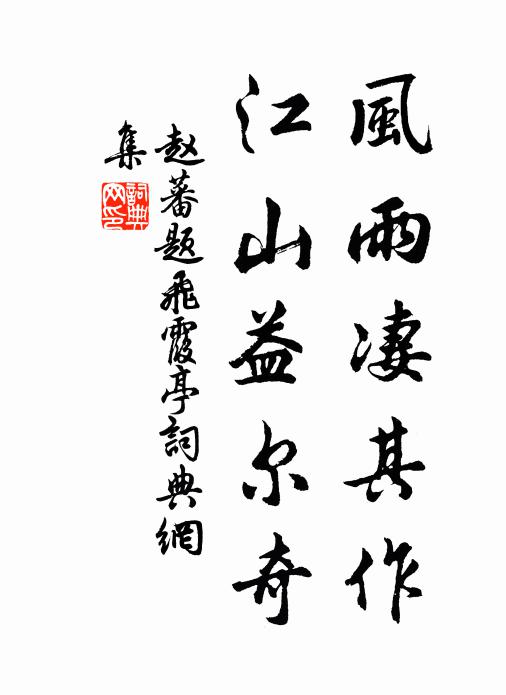 風雨凄其作
江山益尔奇
赵蕃题飛霞亭詞典網
集
詞典網印